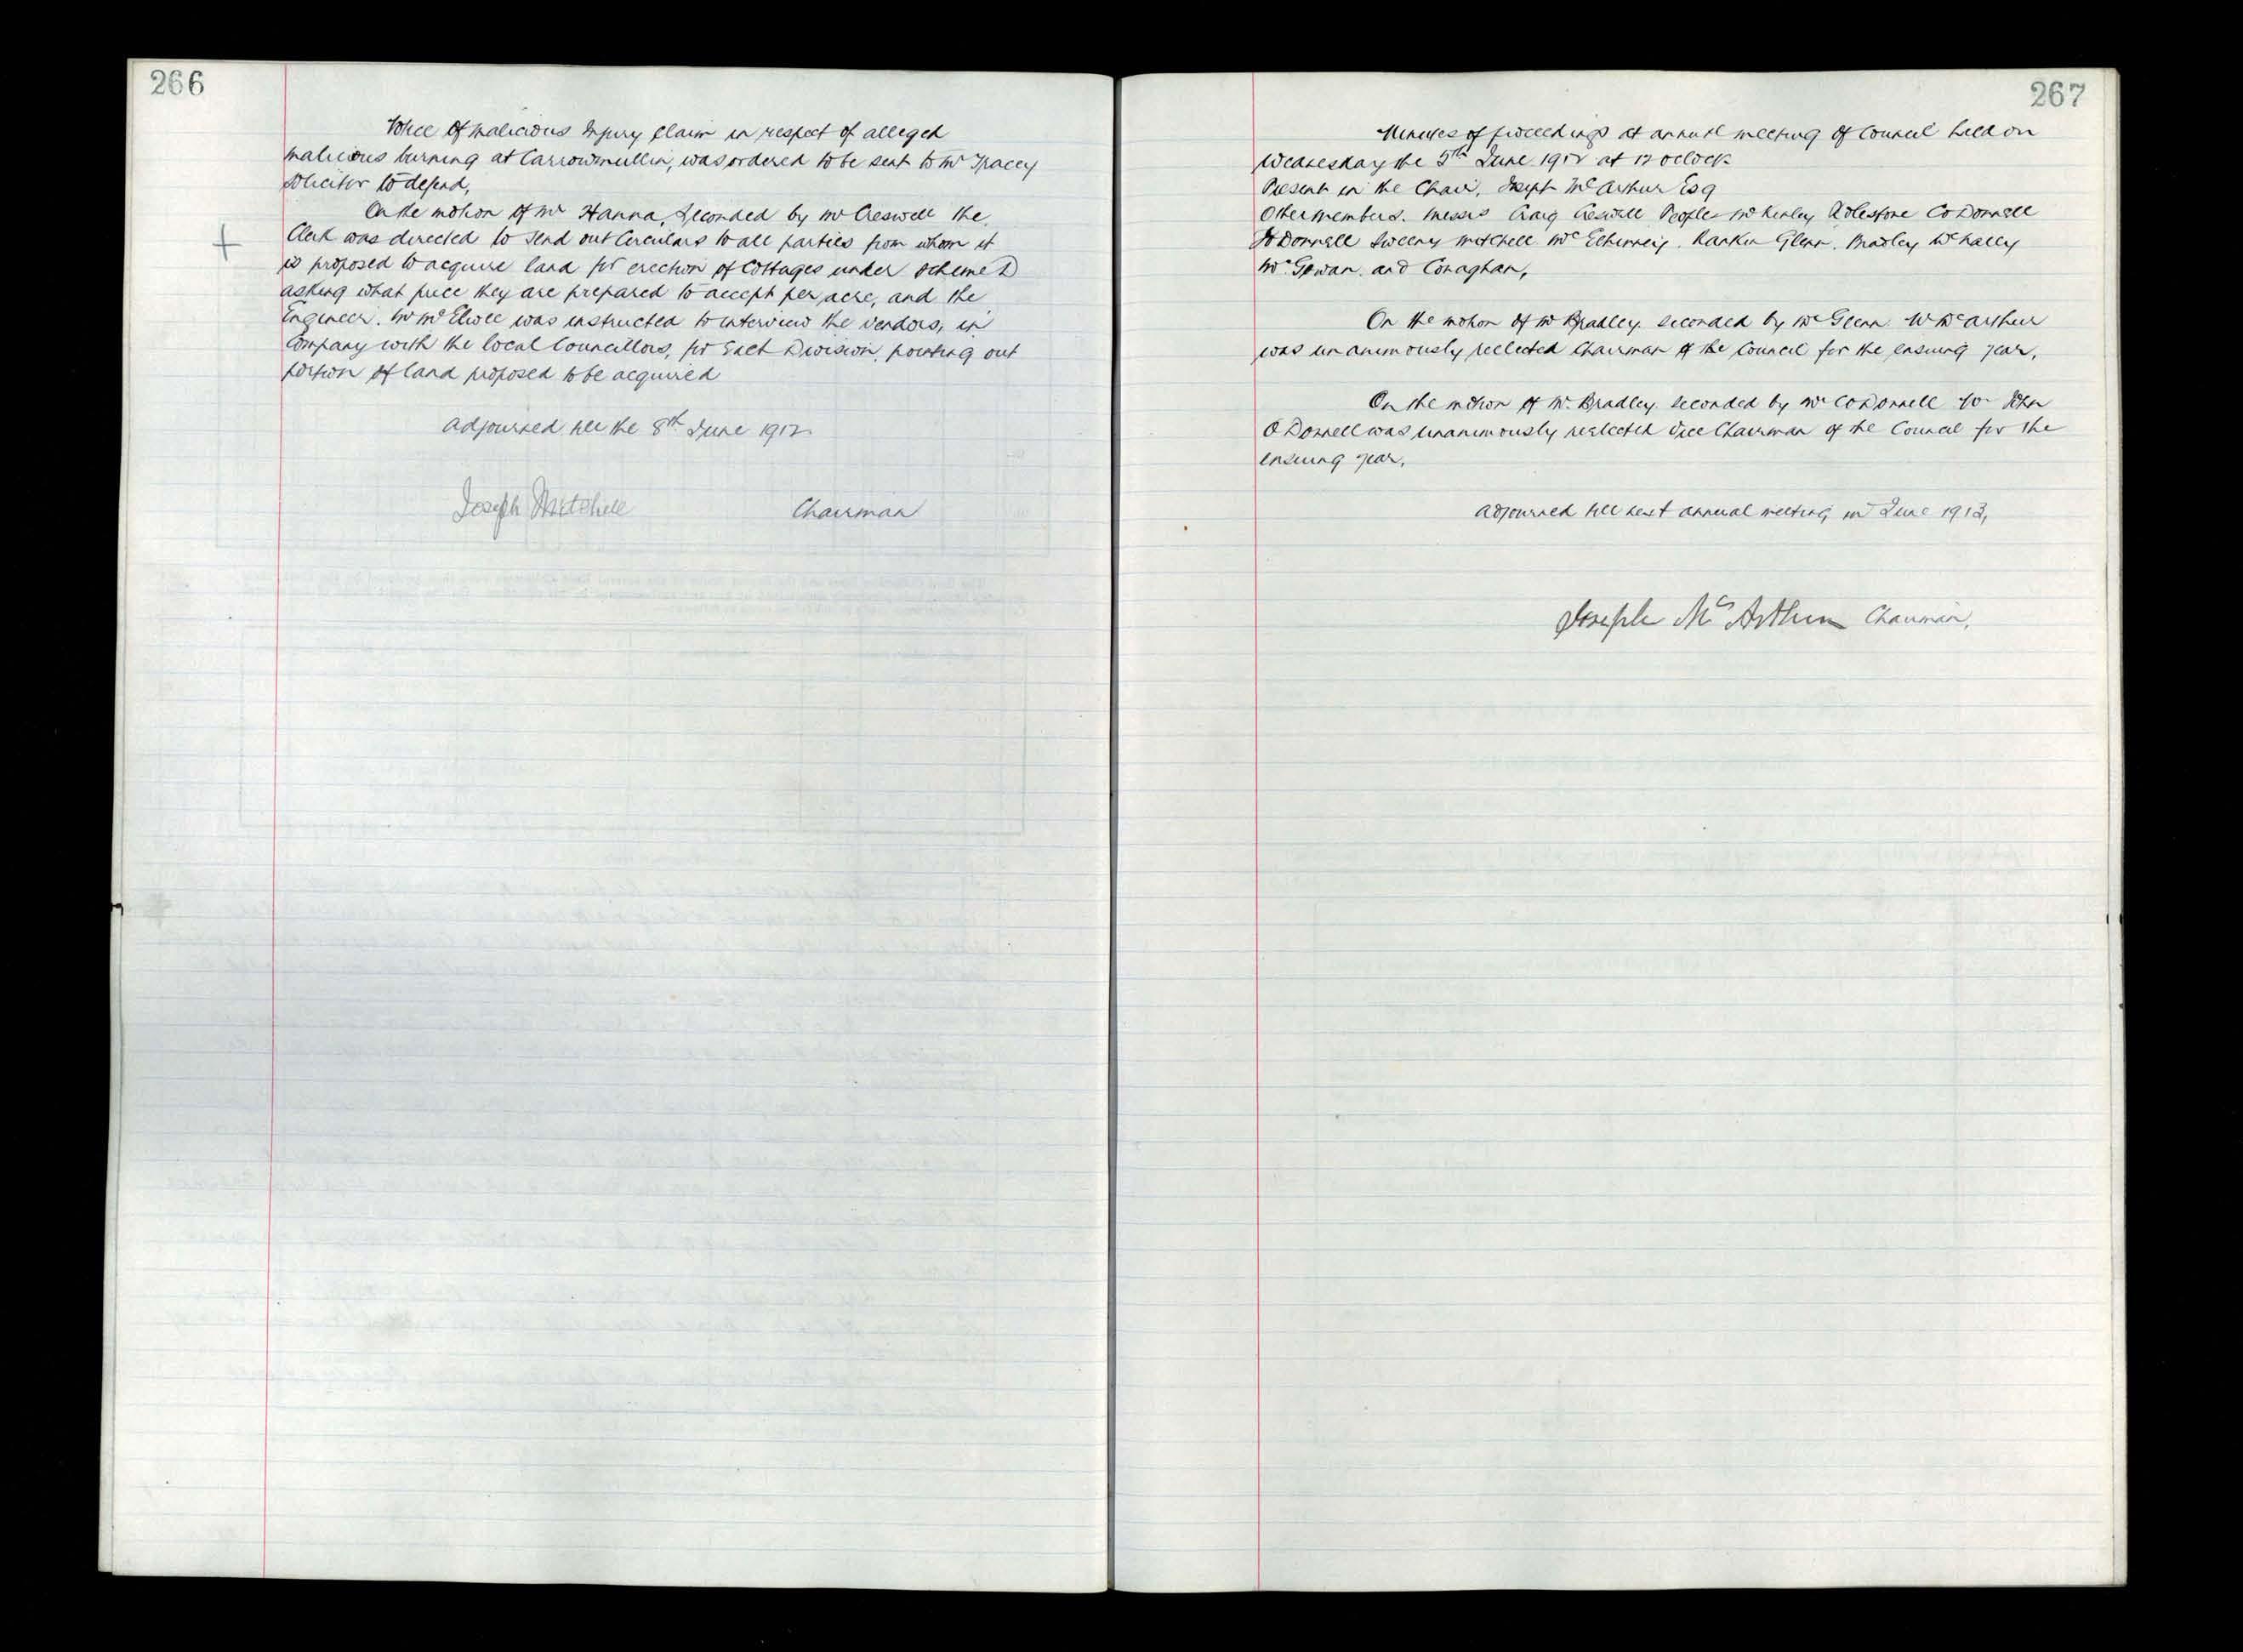 266
Notice of Malicious Injury Claim in respect of alleged
Malicious burning at Carrowmullin, was ordered to be sent to Mr Tracey
Solicitor to defend,
On the motion of Mr Hanna, Seconded by Mr Creswell the
Clerk was directed to send out Circulars to all parties from whom it
is proposed to acquire land for erection of Cottages under Scheme D
asking what price they are prepared to accept per acre, and the
Engineer. Mr McElwee was instructed to interview the Vendors, in
Company with the local Councillors, for Each Division, pointing out
portion of land proposed to be acquired
Adjourned till the 8th June 1912.
Joseph Mitchell Chairman
267
Minutes of proceedings at annual meeting of Council held on
Wednesday the 5th June 1912 at 12 oclock
Present in the Chair, Joseph McArthur Esq
Other members. Messrs Craig Creswell Peoples McKinley Rolestone C O Donnell
J O Donnell Sweeny Mitchell McElhinney. Rankin Glenn. Bradley
McGowan. and Conaghan,
On the motion of Mr Bradley. seconded by Mr Glenn. Mr McArthur
was unanimously reelected Chairman of the Council for the ensuing year,
On the motion of Mr. Bradley. seconded by Mr C O Donnell Mr John
O Donnell was unanimously reelected Vice Chairman of the Council for the
ensuing year,
Adjourned till next annual meeting in June 1913,
Joseph McArthur Chairman,